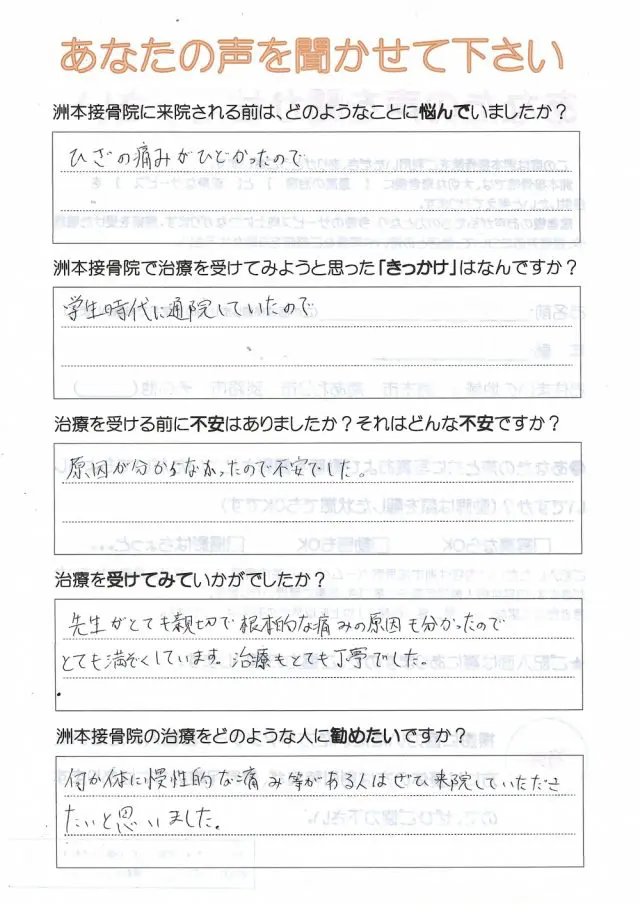 あなたの声を聞かせて下さい
洲本接骨院に来院される前は、どのようなことに悩んでいましたか？
ひざの痛みがひどかったので
洲本接骨院で治療を受けてみようと思った「きっかけ」はなんですか？
学生時代に通院していたので
治療を受ける前に不安はありましたか？それはどんな不安ですか？
原因が分からなかったので不安でした。
治療を受けてみていかがでしたか？
先生がとても親切で根本的な痛みの原因も分かったので
とても満ぞくしています。治療もとても丁寧でした。
洲本接骨院の治療をどのような人に勧めたいですか？
何か体に慢性的な痛み等がある人はぜひ来院していただき
たいと思いました。